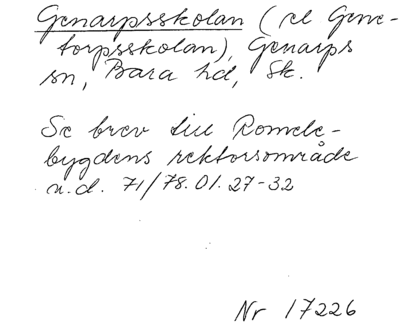 Genarpsskolan (el Gene-
torpsskolan), Genarps
sn, Bara hd, Sk.
Se brev till Romele-
bygdens rektorsområde
u.d. 71/78.01.27-32
Nr 17226